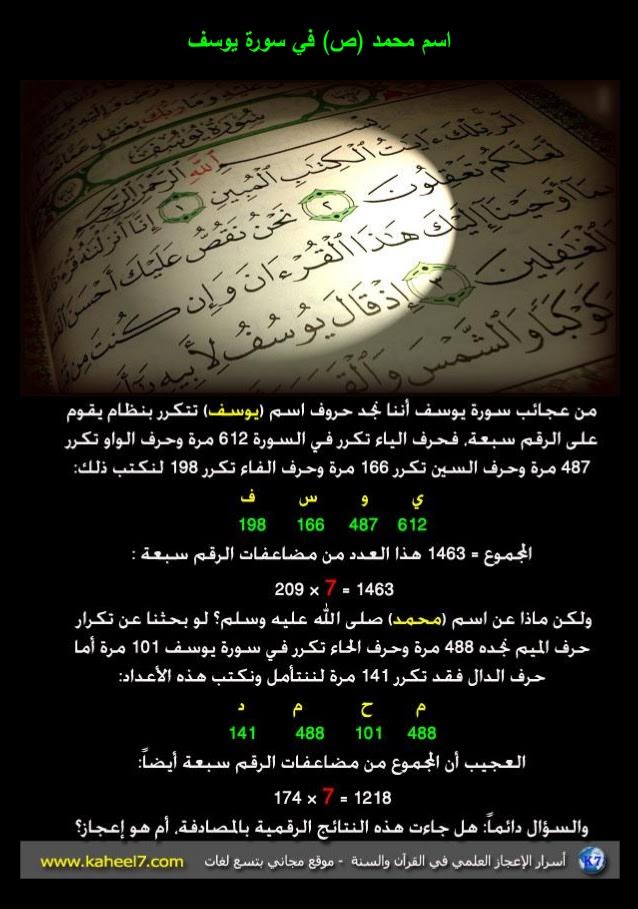 اسم محمد (ص) في سورة يوسف
سورة يوسف
بسم الله الرحمن الرحيم
الر تلك ءايت الكتب المبين ١ إنا أنزلنه
لعلكم تعقلون ٢ نحن نقص عليك أحسن
بما أوحينا إليك هذا القرءان وإن كنت من
الغفلين ٣ إذ قال يوسف لأبيه
كوكبا والشمس والقمر
من عجائب سورة يوسف أننا نجد حروف اسم (يوسف) تتكرر بنظام يقوم
على الرقم سبعة، فحرف الياء تكرر في السورة 612 مرة وحرف الواو تكرر
487 مرة وحرف السين تكرر 166 مرة وحرف الفاء تكرر 198 لنكتب ذلك:
ي و س ف
612 487 166 198
المجموع = 1463 هذا العدد من مضاعفات الرقم سبعة :
1463 = 7 × 209
ولكن ماذا عن اسم (محمد) صلى الله عليه وسلم؟ لو بحثنا عن تكرار
حرف الميم نجده 488 مرة وحرف الحاء تكرر في سورة يوسف 101 مرة أما
حرف الدال فقد تكرر 141 مرة لننتأمل ونكتب هذه الأعداد:
م ح م د
488 101 488 141
العجيب أن المجموع من مضاعفات الرقم سبعة أيضاً:
1218 = 7 × 174
والسؤال دائماً: هل جاءت هذه النتائج الرقمية بالمصادفة، أم هو إعجاز؟
K7 أسرار الإعجاز العلمي في القرآن والسنة - موقع مجاني بتسع لغات www.kaheel7.com